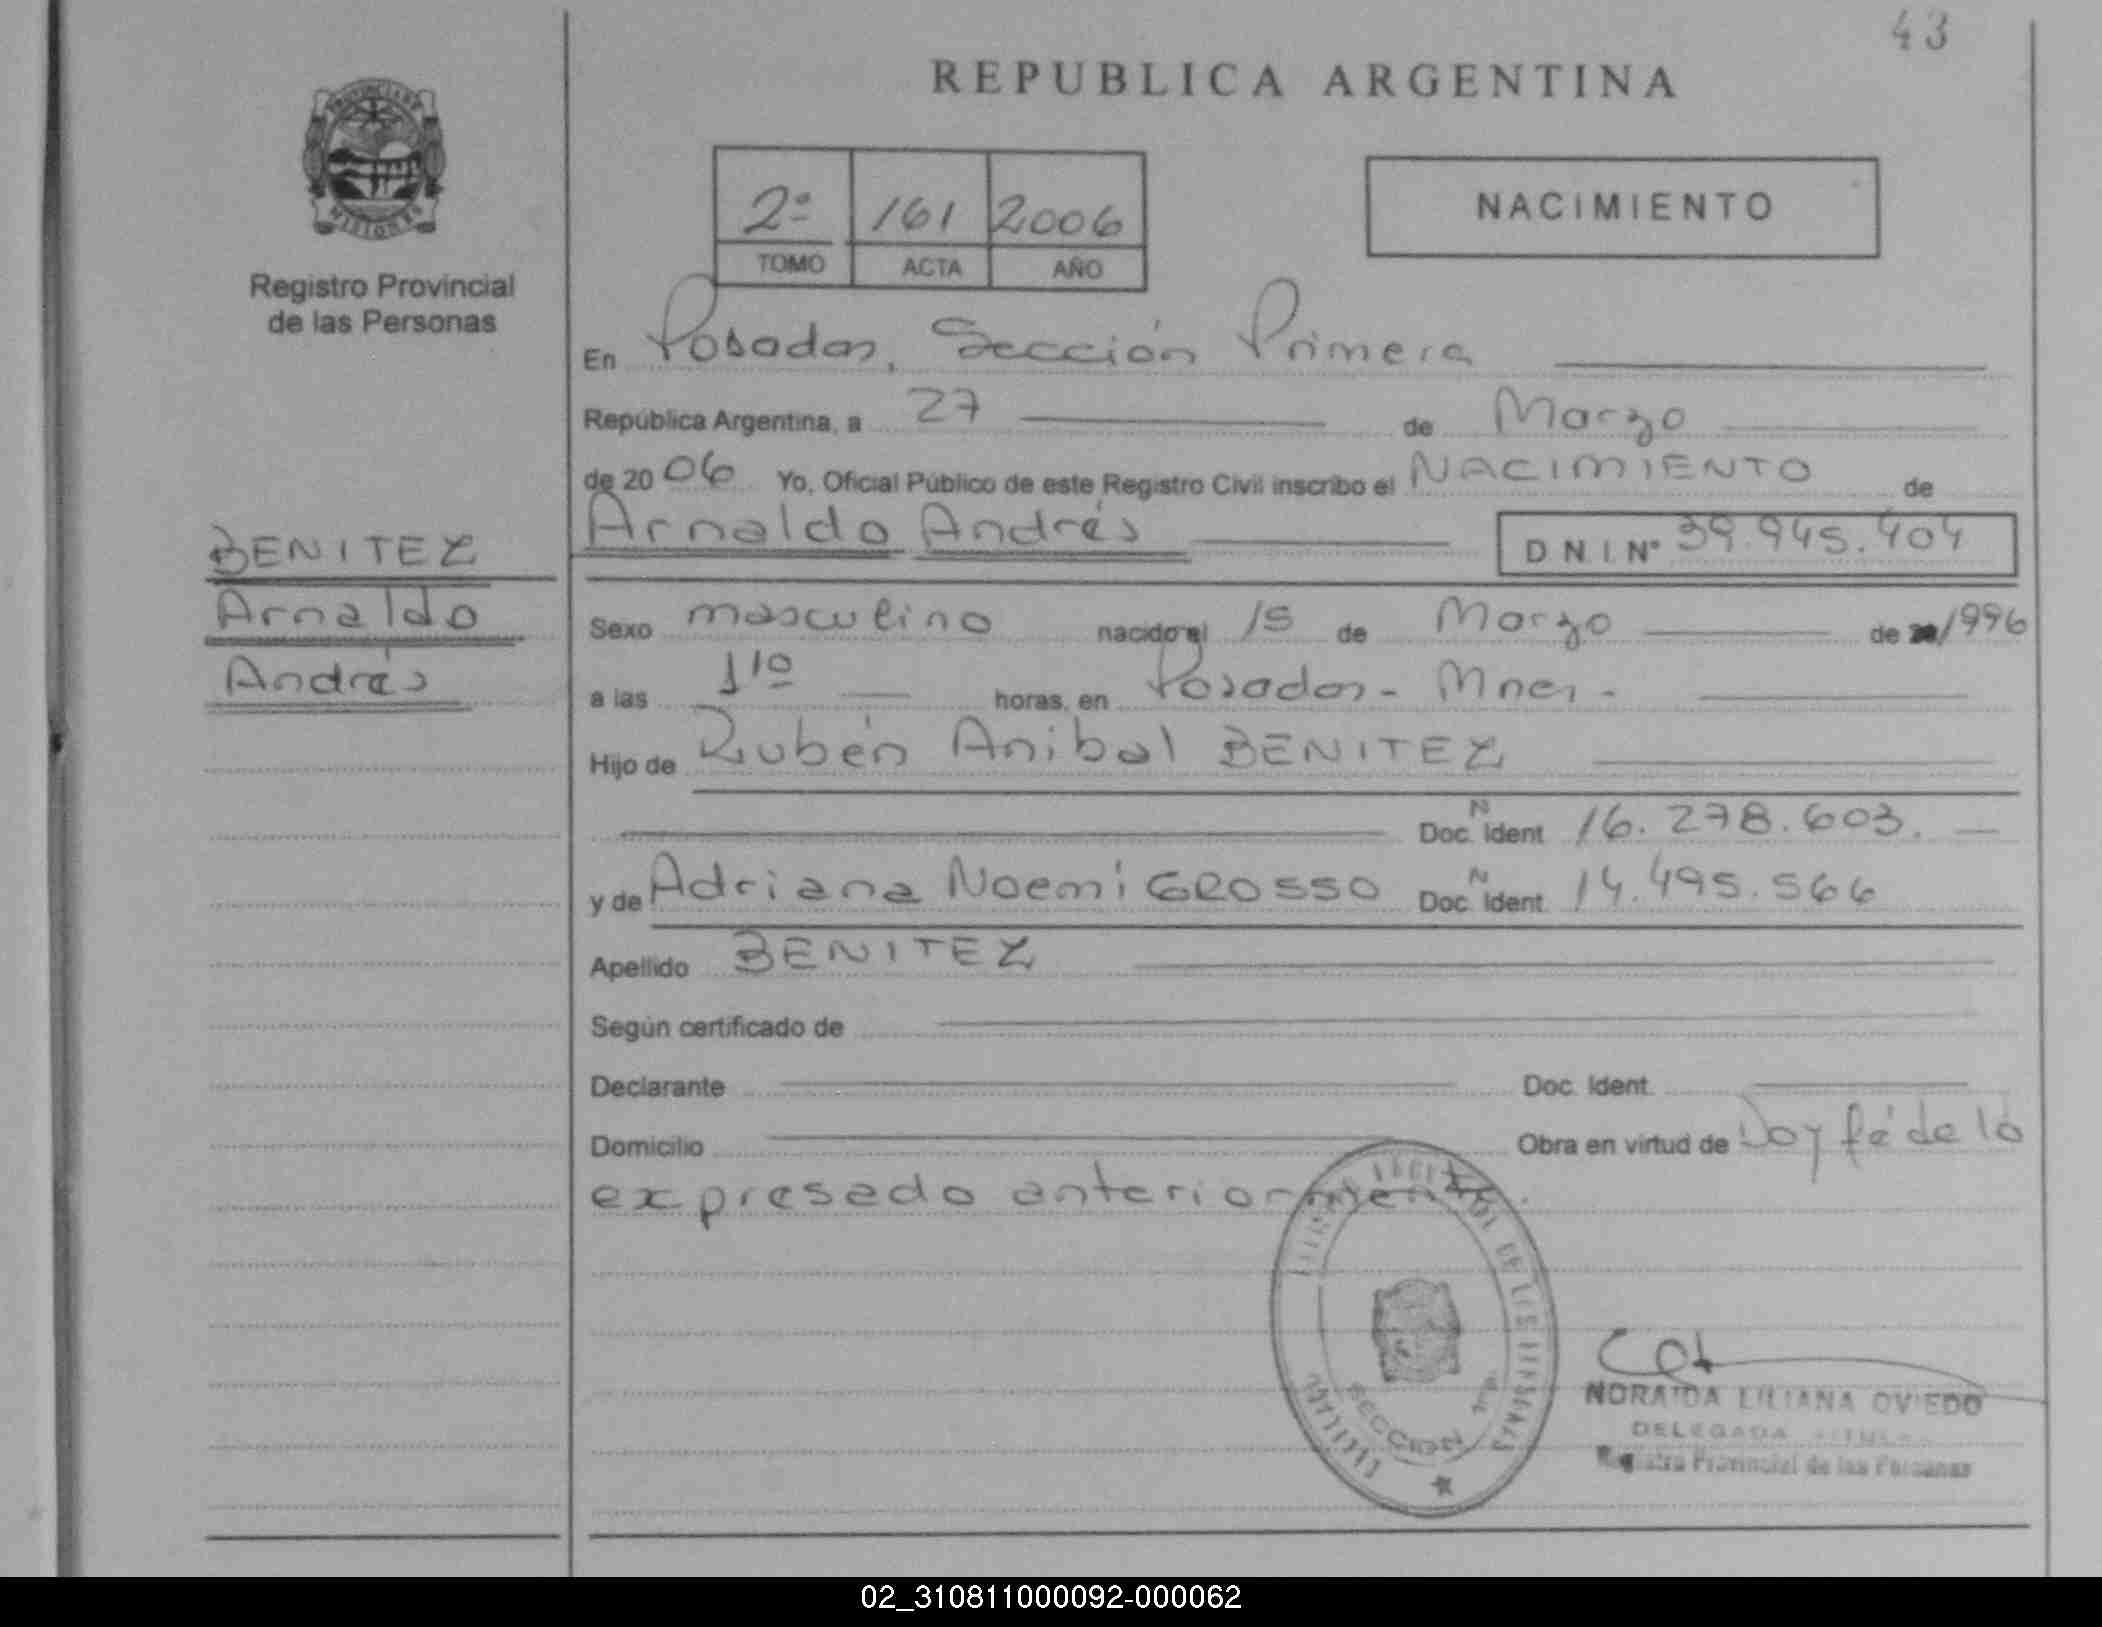 43
REPUBLICA ARGENTINA
PROVINCIA DE
MISIONES
Registro Provincial
de las Personas
2º 161 2006
TOMO ACTA AÑO
NACIMIENTO
En Posadas, Sección Primera
República Argentina, a 27 de Marzo
de 2006 Yo, Oficial Público de este Registro Civil inscribo el NACIMIENTO de
Arnaldo Andrés D.N.I. Nº 39.945.404
BENITEZ
Arnaldo
Andrés
Sexo masculino nacido el 15 de Marzo de 1996
a las horas, en Posadas - Mnes -
Hijo de Rubén Anibal BENITEZ
Doc. Ident N 16.278.603.
y de Adriana Noemí GROSSO Doc. Ident. N 14.495.566
Apellido BENITEZ
Según certificado de
Declarante Doc. Ident.
Domicilio Obra en virtud de Doy fé de lo
expresado anteriormente.
DE LAS PERSONAS
SECCION
NORAIDA LILIANA OVIEDO
DELEGADA
Registro Provincial de las Personas
02_310811000092-000062